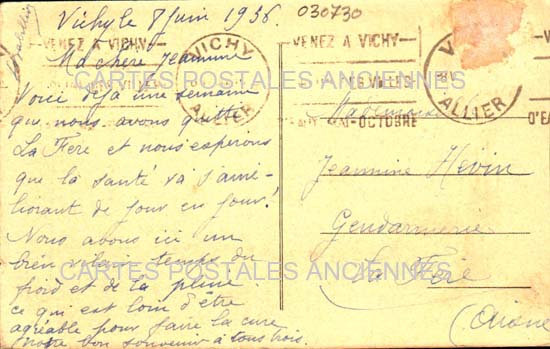 Vichy le 8 juin 1936.
030730
VENEZ A VICHY
VICHY
ALLIER
VENEZ A VICHY
MAI-OCTOBRE
ALLIER
D'EA
Ma chère Jeannine
Voici déjà une semaine
que nous avons quitté
La Fère et nous espérons
que la santé va s'amé-
liorant de jour en jour!
Nous avons ici un
bien vilain temps du
froid et de la pluie
ce qui est loin d'être
agréable pour faire la cure
Notre bon souvenir à tous trois.
Jeannine Hévin
Gendarmerie
La Fère
(Aisne
CARTES POSTALES ANCIENNES
CARTES POSTALES ANCIENNES